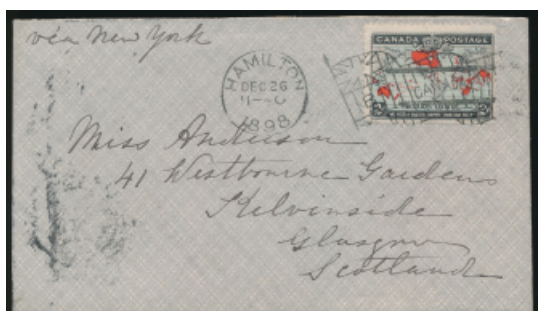 via New York
CANADA POSTAGE
HAMILTON
DEC 26
1898
CANADA
Miss Anderson
41 Westbourne Gardens
Kelvinside
Glasgow
Scotland